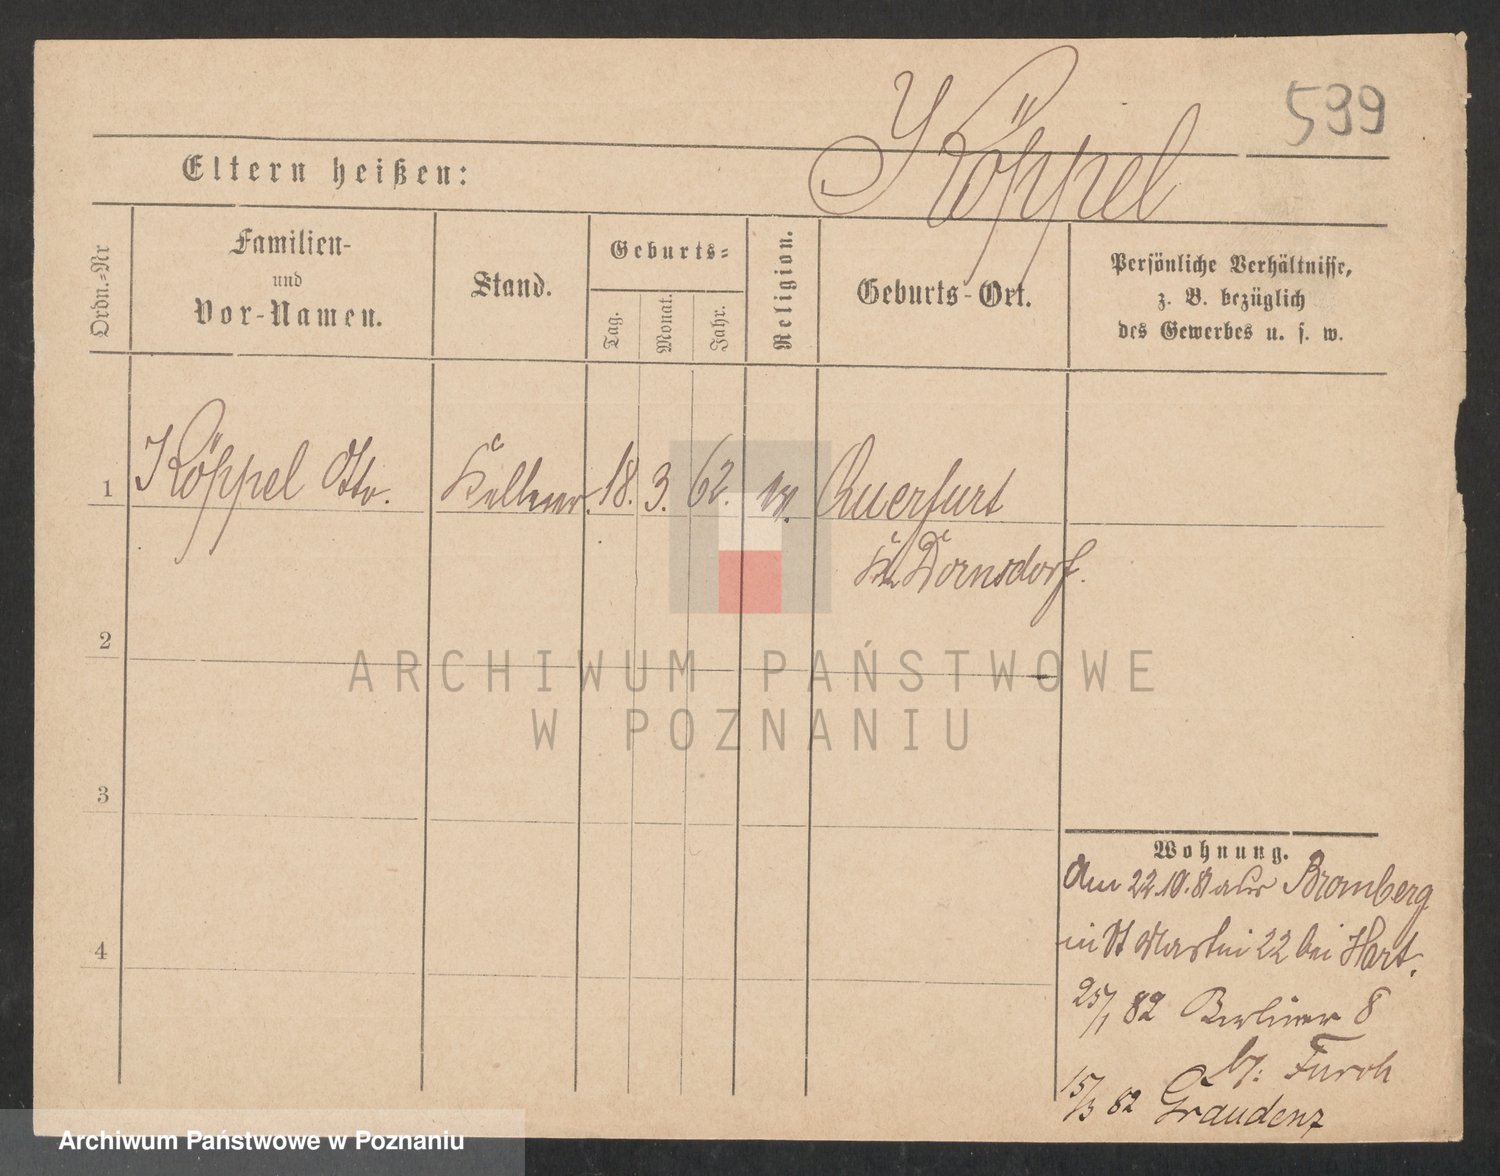 Köppel
599
Eltern heißen:
Ordn.-Nr
Familien-
und
Vor-Namen.
Stand.
Geburts-
Tag.
Monat.
Jahr.
Religion.
Geburts-Ort.
Persönliche Verhältnisse,
z. B. bezüglich
des Gewerbes u. s. w.
1
Köppel Otto.
Kellner.
18.
3.
62.
ev.
Querfurt
Kr. Dornsdorf.
2
3
4
ARCHIWUM PAŃSTWOWE
W POZNANIU
Wohnung.
Am 22.10.81 aus Bromberg
in St Martin 22 bei Hart.
25/1 82 Berliner 8
b/:
15/3 82 Graudenz
Archiwum Państwowe w Poznaniu